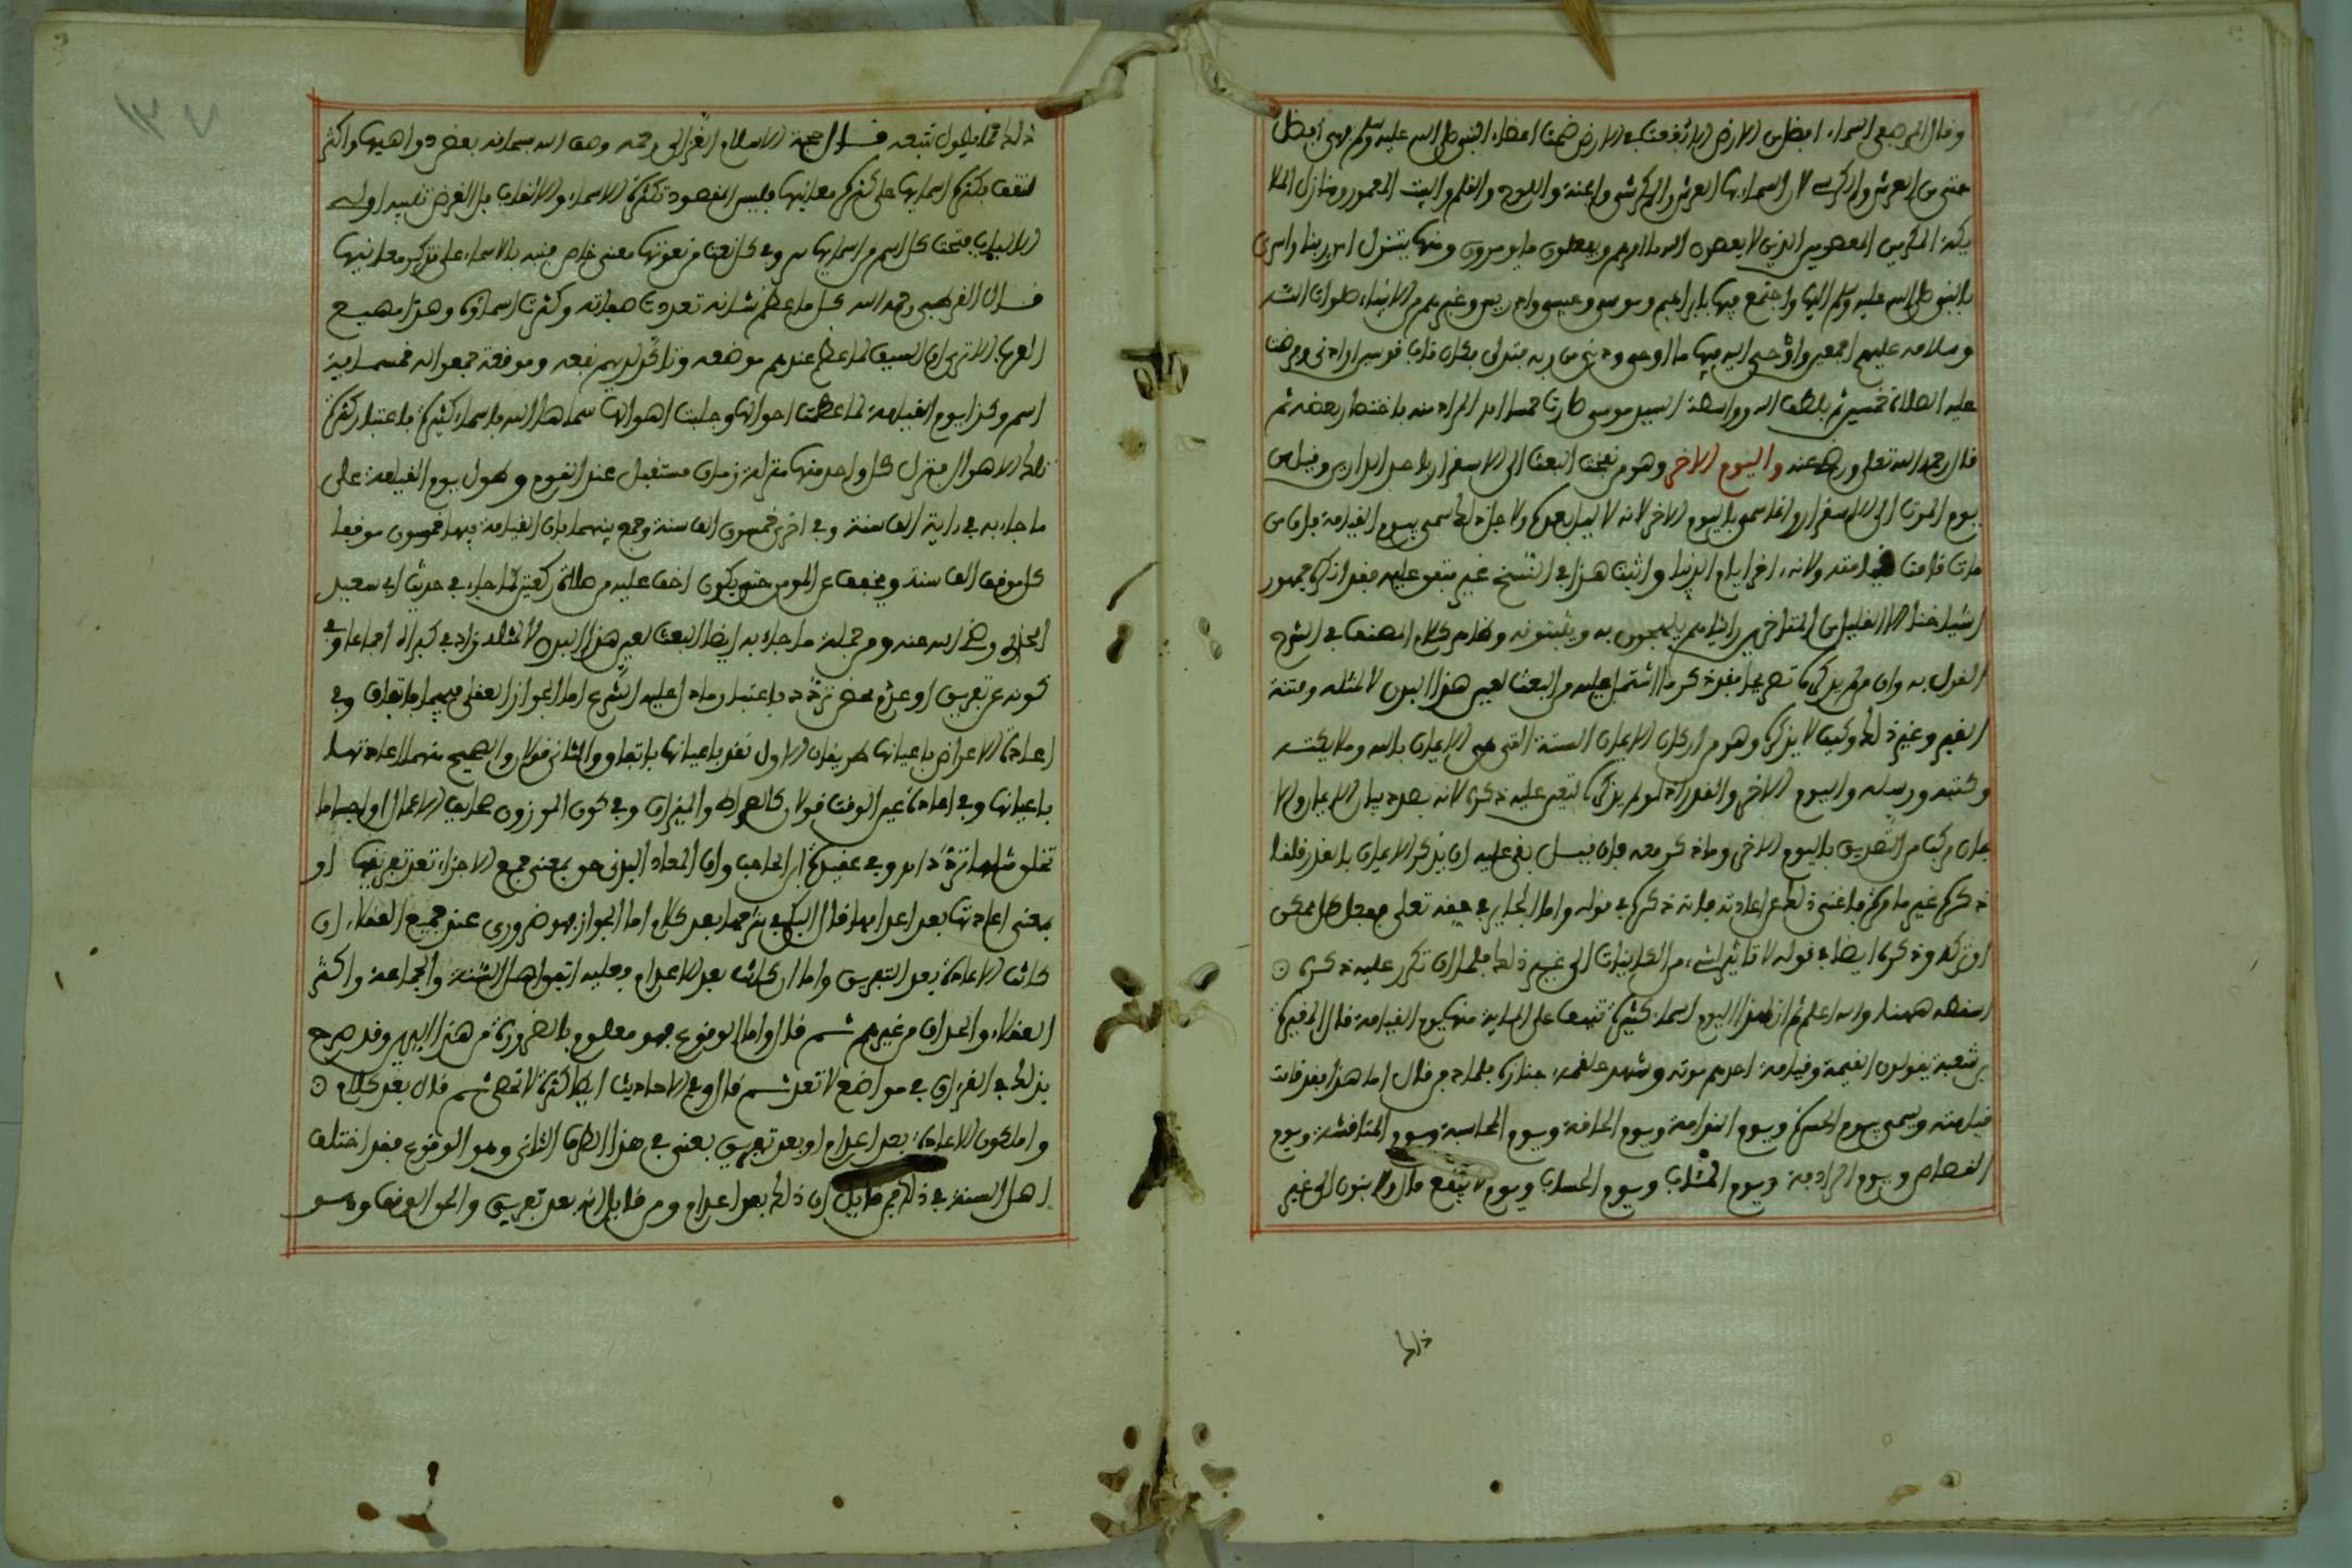 وقال المرجع السماء افضل من الارض الا بقعة في الارض ضمت اعضاء النبي صلى الله عليه وسلم فهي افضل
حتى من العرش والكرسي لان السماء بها العرش والكرسي والجنة واللوح والقلم والبيت المعمور ومنازل الملا
يكة المكرمين المعصومين الذين لا يعصون الله ما امرهم ويفعلون ما يومرون ومنها يتنزل امر ربنا واسرى
بالنبي صلى الله عليه وسلم اليها واجتمع فيها بابراهيم وموسى وعيسى وادريس وغيرهم من الانبياء صلوات الله
وسلامه عليهم اجمعين واوحى اليه فيها ما اوحى ودنى من ربه فتدلى فكان قاب قوسين او ادنى وفرضت
عليه الصلاة خمسين ثم بلطف الله وواسطة السيد موسى صارت خمسا
قال رحمه الله تعلى ورضي عنه واليوم الاخر وهو من نفخة البعث الى الاستقرار باحد الدارين وقيل من
يوم الموت الى الاستقرار وانما سمي باليوم الاخر لانه لا ليل بعده ولاجل ذلك سمي بيوم القيامة فان من
مات قامت قيامته ولانه اخر ايام الدنيا واثبت هذا في النسخ غير متفق عليه فقد انكره جمهور
اشياخنا الا القليل من المتاخرين رايناهم يلهجون به ويثبتونه وظاهر كلام المصنف في الشرح
القول به وان لم يذكره تصريحا فقد ذكر ما اشتمل عليه من البعث لعين هذا البدن لا لمثله وفتنة
القبر وغير ذلك وكيف لا يذكره وهو من اركان الايمان الستة التي هي الايمان بالله وملايكته
وكتبه ورسله واليوم الاخر والقدر اذ لو لم يذكره لتعين عليه ذكره لانه بصدد بيان الايمان والا
يمان مركب من التصديق باليوم الاخر وما ذكر معه فان قيل بقي عليه ان يذكر الايمان بالقدر قلنا
ذكره غير ما مرة فاغنى ذلك عن اعادته فانه ذكره في قوله واما الجايز في حقه تعلى ففعل كل ممكن
او تركه وذكره ايضا في قوله لا تاثير لشيء من الكاينات الى غير ذلك فلما ان تكرر عليه ذكره ⊙
اسقطه ههنا والله اعلم ثم ان لهذا اليوم اسماء كثيرة تنيف على الماية منها يوم القيامة قال المغيرة
بن شعبة يقولون القيمة وقيامة احدهم موته وشهد علقمة جنازة فلما دفن قال اما هذا فقد قامت
قيامته ويسمى بيوم الحسرة ويوم الندامة ويوم الحاقة ويوم المحاسبة ويوم المناقشة ويوم
القصاص ويوم الرادفة ويوم المئاب ويوم الحساب ويوم لا ينفع مال ولا بنون الى غير
ذلك
ذلك مما يطول تتبعه قال حجة الاسلام الغزالي رحمه وصف الله سبحانه بعض دواهيها واكثر
لتقف بكثرة اسمايها على كثرة معانيها فليس المقصود تكثرة الاسماء والالقاب بل الغرض تنبيه اولي
الالباب فتحت كل اسم من اسمايها سر وفي كل نعت من نعوتها معنى خاص
قال القرطبي رحمه الله كل ما عظم شانه تعددت صفاته وكثرت اسماؤه وهذا مهيع
العرب الا ترى ان السيف لما عظم عندهم موضعه وتاكد لديهم نفعه وموقعه جمعوا له خمسماية
اسم وكذا يوم القيامة لما عظمت احوالها وجلت اهوالها سماها الله باسماء كثيرة باعتبار كثرة
تلك الاهوال فتنزل كل واحد منها منزلة زمان مستقبل عند القوم وطول يوم القيامة على
ما جاء به في راية الف سنة وفي اخرى خمسون الف سنة وجمع بينهما بان القيامة فيها خمسون موقفا
كل موقف الف سنة ويخفف عن المومن حتى يكون اخف عليه من صلاة ركعتين كما جاء في حديث ابي سعيد
الخدري رضي الله عنه ومن جملة ما جاء به ايضا البعث لعين هذا البدن لا لمثله
كونه عن تفريق او عدم محض تردد باعتبار ما دل عليه الشرع اما الجواز العقلي فيهما باتفاق وفي
اعادة الاعراض باعيانها طريقان الاول تعود باعيانها باتفاق والثاني قولان والصحيح منهما اعادتها
باعيانها وفي اعادة عين الوقت قولان كالصراط والميزان وفي كون الموزون صحايف الاعمال او اجساما
تخلق تردد وفي عقيدة ابن الحاجب وان المعاد البدني حق بمعنى جمع الاجزاء بعد تفريقها او
بمعنى اعادتها بعد اعدامها قال البكي في شرحها بعد كلام اما الجواز فهو ضروري عند جميع العقلاء ان
كانت الاعادة بعد التفريق واما ان كانت بعد الاعدام فعليه اتفق اهل السنة والجماعة واكثر
العقلاء والحذاق من غيرهم ثم قال واما الوقوع فهو معلوم بالضرورة من هذا الدين وقد صرح
بذلك في القرءان في مواضع لا تعد ثم قال وفي الاحاديث ايضا كثرة لا تحصى ثم قال بعد كلام ⊙
واما كون الاعادة بعد اعدام او بعد تفريق يعني في هذا الطرف الثاني وهو الوقوع فقد اختلف
اهل السنة في ذلك فمن قايل ان ذلك بعد اعدام ومن قايل انه بعد تفريق والحق الوقف وهو
١٣٧